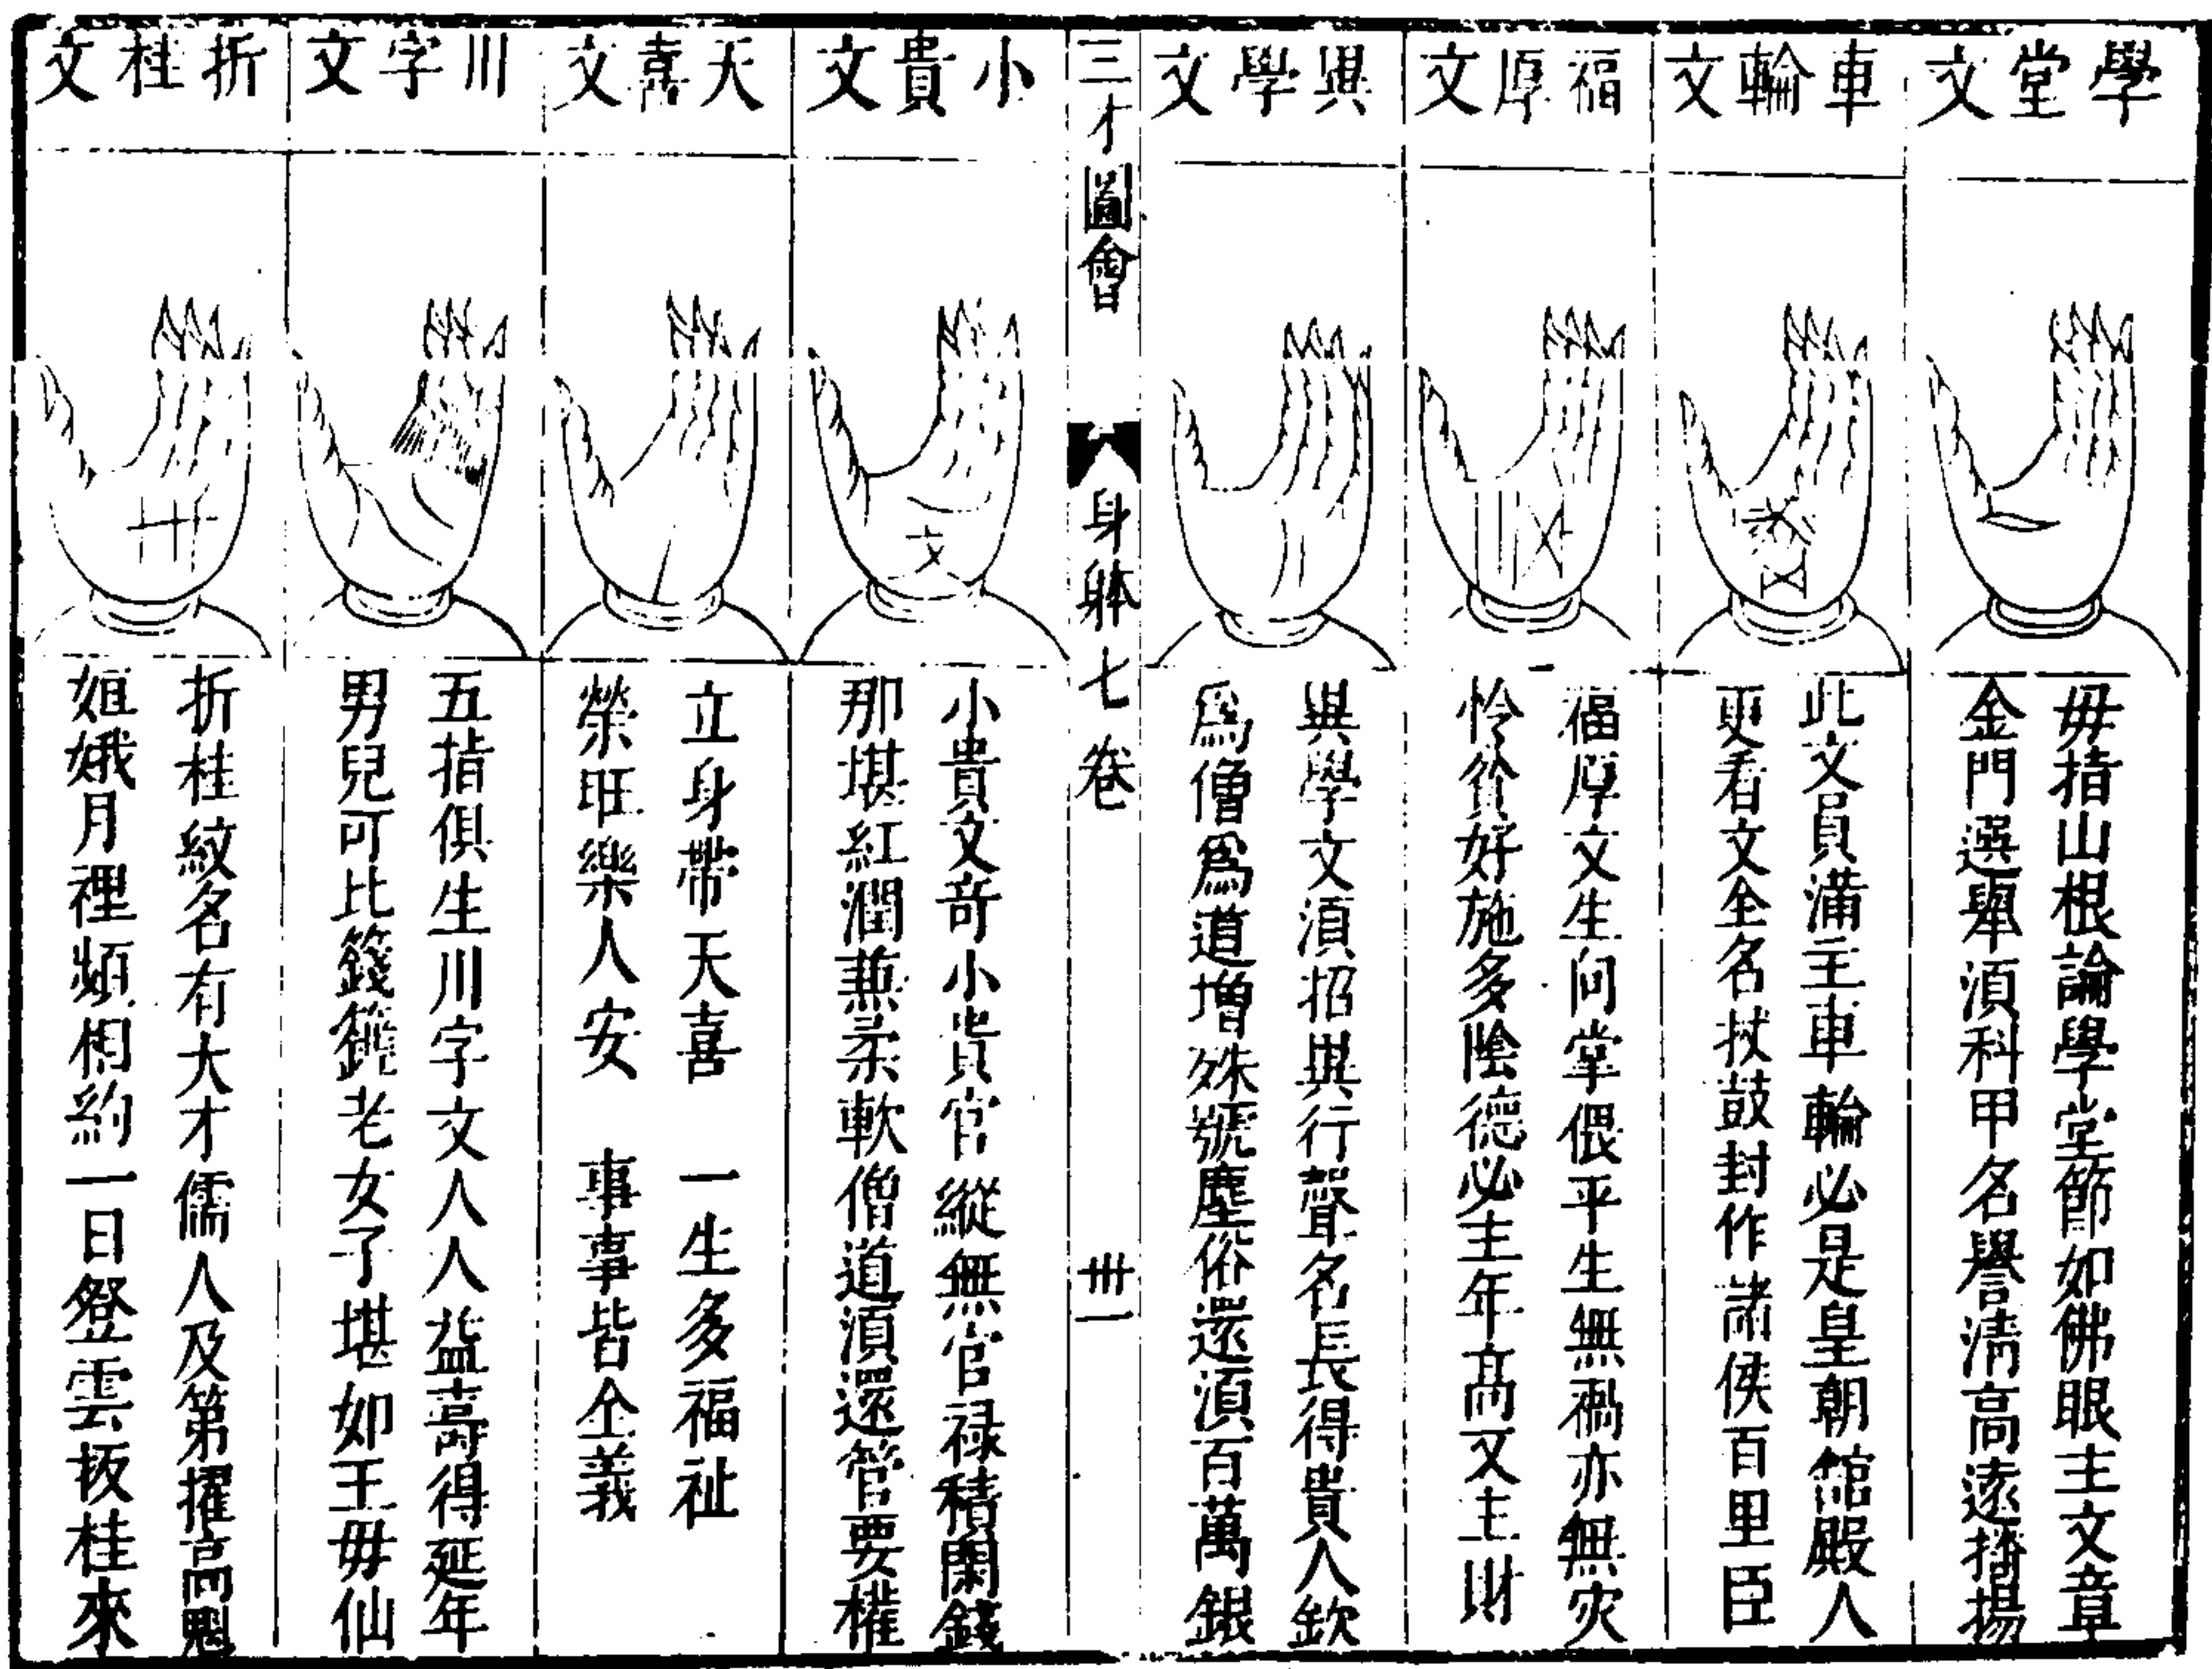 學堂文
毋指山根論學堂節如佛眼主文章
金門選舉須科甲名譽清高遠播揚
車輪文
此文員滿主車輪必是皇朝館殿人
更看文全名扙鼓封作諸侯百里臣
福厚文
福厚文生向掌偎平生無禍亦無灾
怜貧好施多陰德必主年高又主財
異學文
異學文須招異行聲名長得貴人欽
爲僧爲道增殊號塵俗還須百萬銀
三才圖會
身體七卷
卅一
小貴文
小貴文奇小貴官縱無官禄積閑錢
那堪紅潤兼柔軟僧道須還管要權
天喜文
立身帶天喜 一生多福祉
榮旺樂人安 事事皆全義
川字文
五指俱生川字文人人益壽得延年
男兒可比籛鏗老女子堪如王毋仙
折桂文
折桂紋名有大才儒人及第擢高魁
姮娥月裡頻相約一日登雲扳桂來